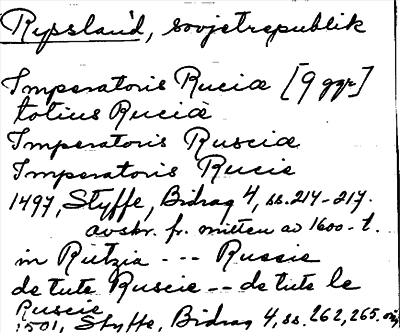 Ryssland, sovjetrepublik
Imperatoris Ruciæ [9 ggr]
totius Ruciæ
Imperatoris Rusciæ
Imperatoris Rucie
1497, Styffe, Bidrag 4, ss. 214-217.
avskr. fr. mitten av 1600-t.
in Rutzia --- Russie
de tute Ruscie -- de tute le
Ruscie
1501, Styffe, Bidrag 4, ss. 262, 265.